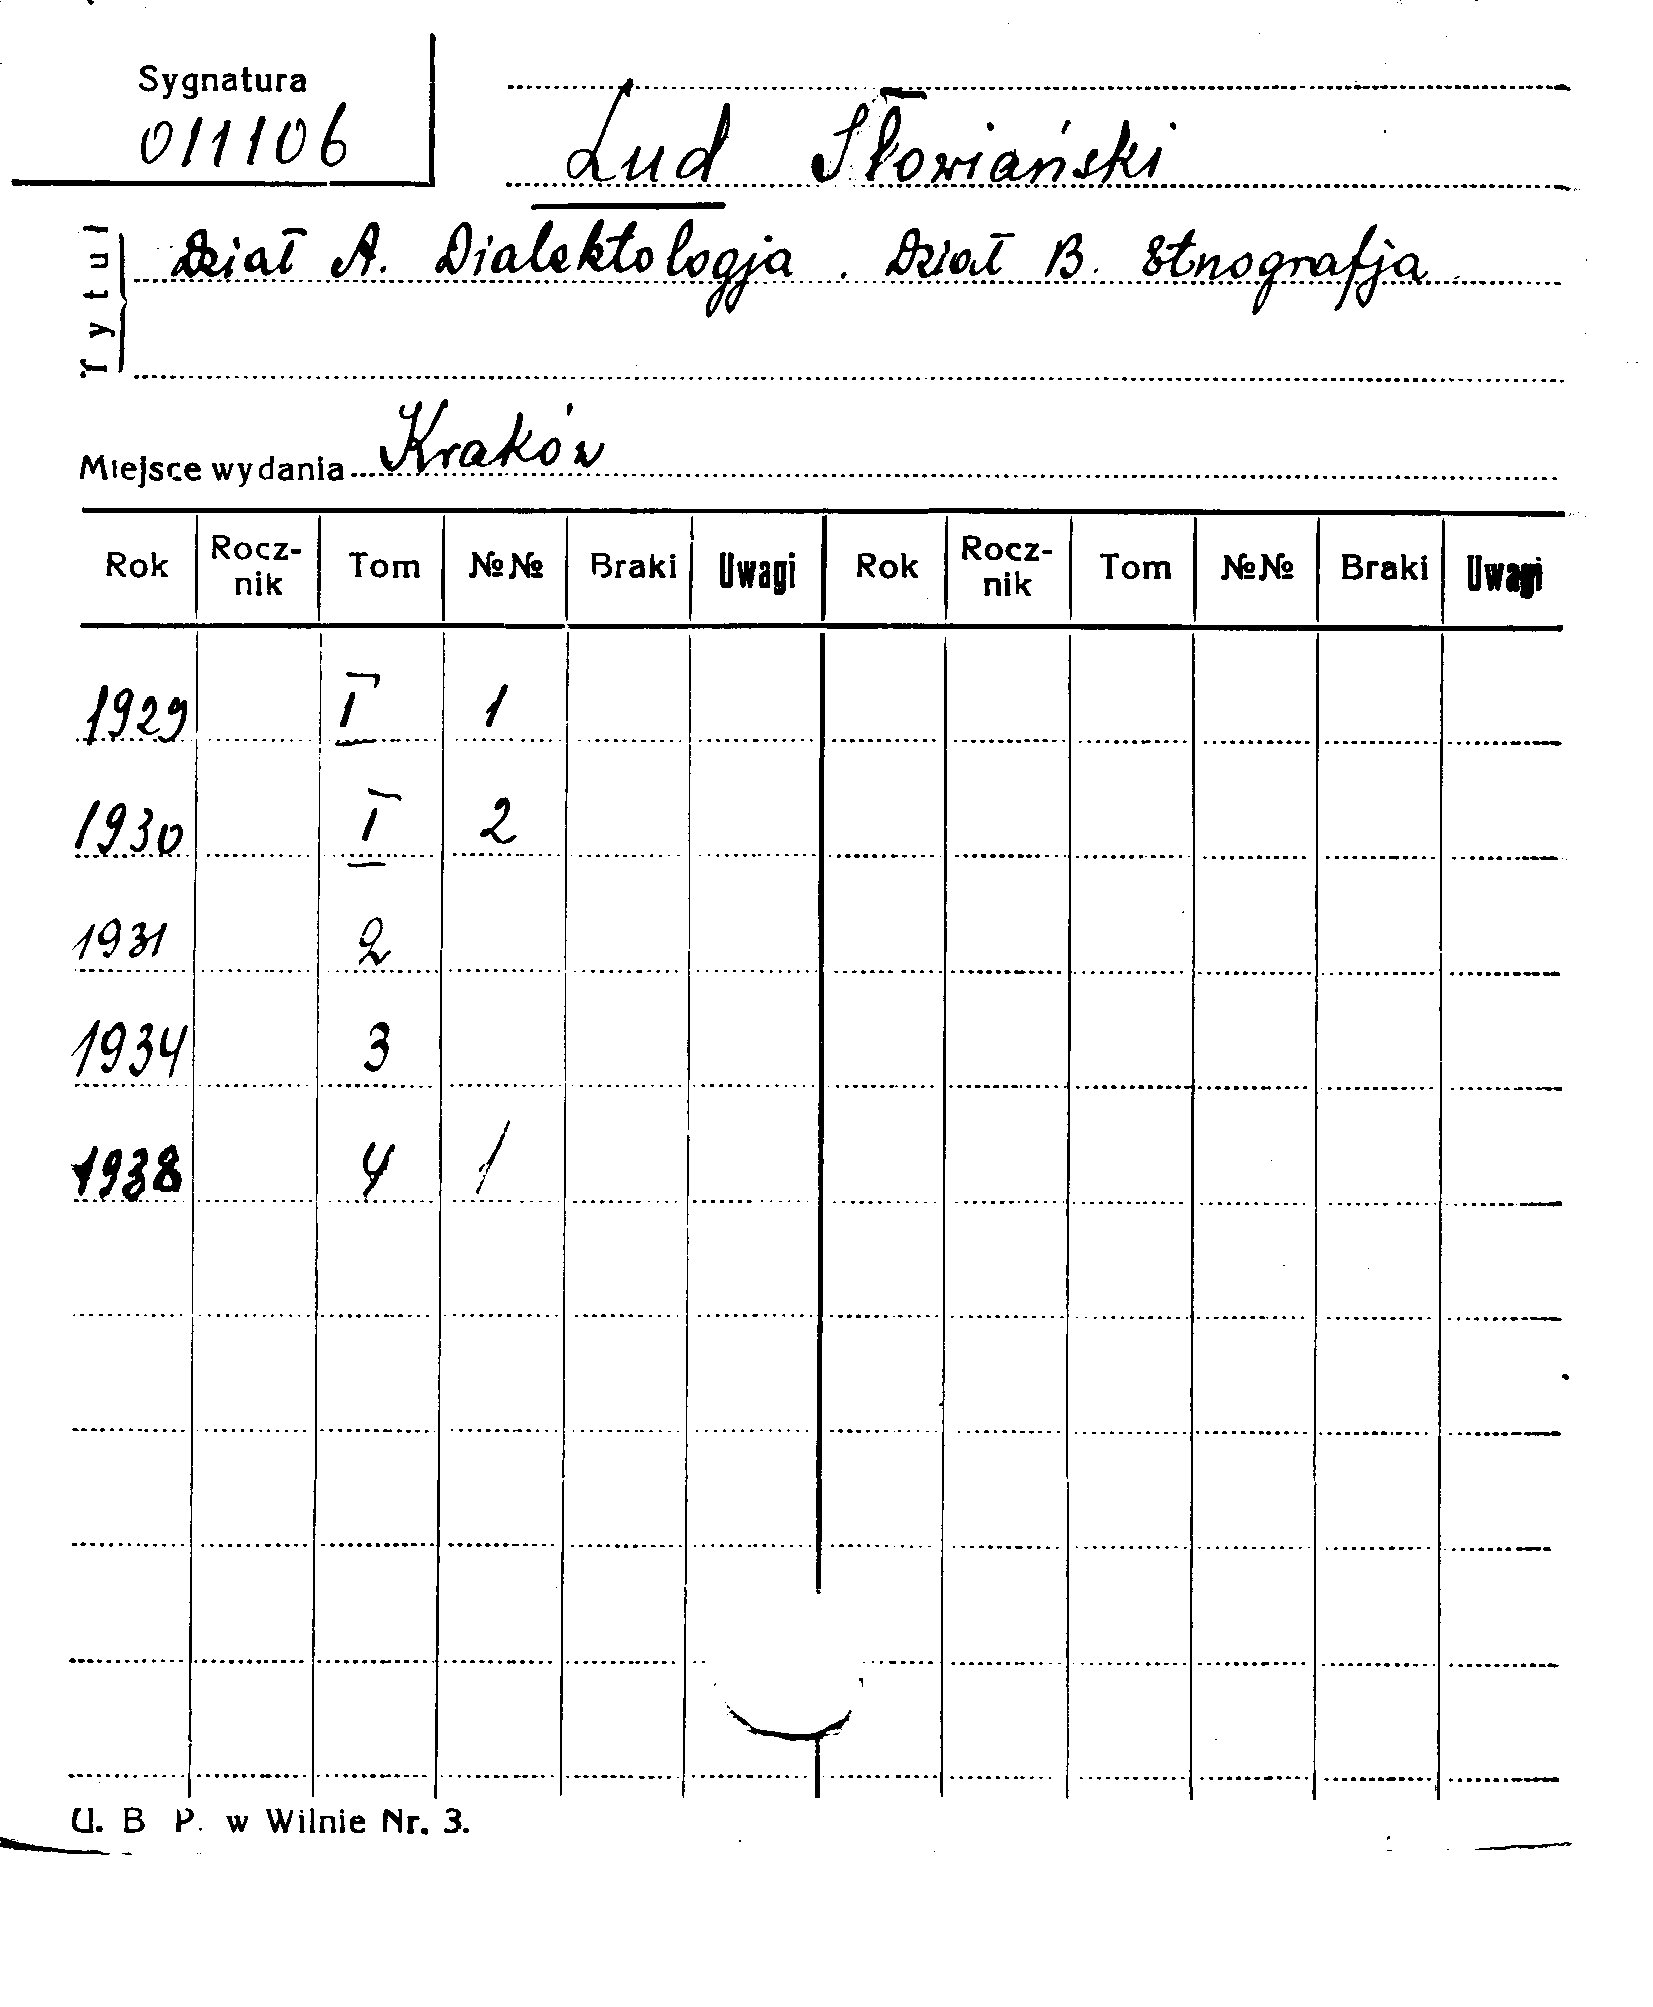 Sygnatura
011106
Lud Słowiański
Tytuł
Dział A. Dialektologja. Dział B. Etnografja
Miejsce wydania Kraków
Rok Rocz-nik Tom №№ Braki Uwagi Rok Rocz-nik Tom №№ Braki Uwagi
1929 I 1
1930 I 2
1931 2
1934 3
1938 4 1
U. B P. w Wilnie Nr. 3.